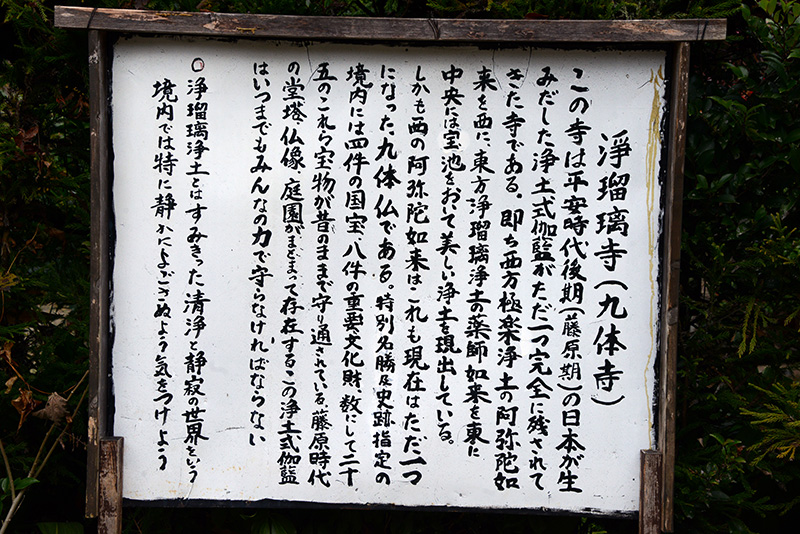 浄瑠璃寺(九体寺)
この寺は平安時代後期(藤原期)の日本が生
みだした浄土式伽藍がただ一つ完全に残されて
きた寺である。即ち西方極楽浄土の阿弥陀如
来を西に、東方浄瑠璃浄土の薬師如来を東に
中央には宝池をおいて美しい浄土を現出している。
しかも西の阿弥陀如来は、これも現在はただ一つ
になった、九体仏である。特別名勝及史跡指定の
境内には四件の国宝、八件の重要文化財、数にして二十
五のこれら宝物が昔のままで守り通されている。藤原時代
の堂塔、仏像、庭園がまとまって存在するこの浄土式伽藍
はいつまでもみんなの力で守らなければならない
○浄瑠璃浄土とはすみきった清浄と静寂の世界をいう
境内では特に静かによごさぬよう気をつけよう